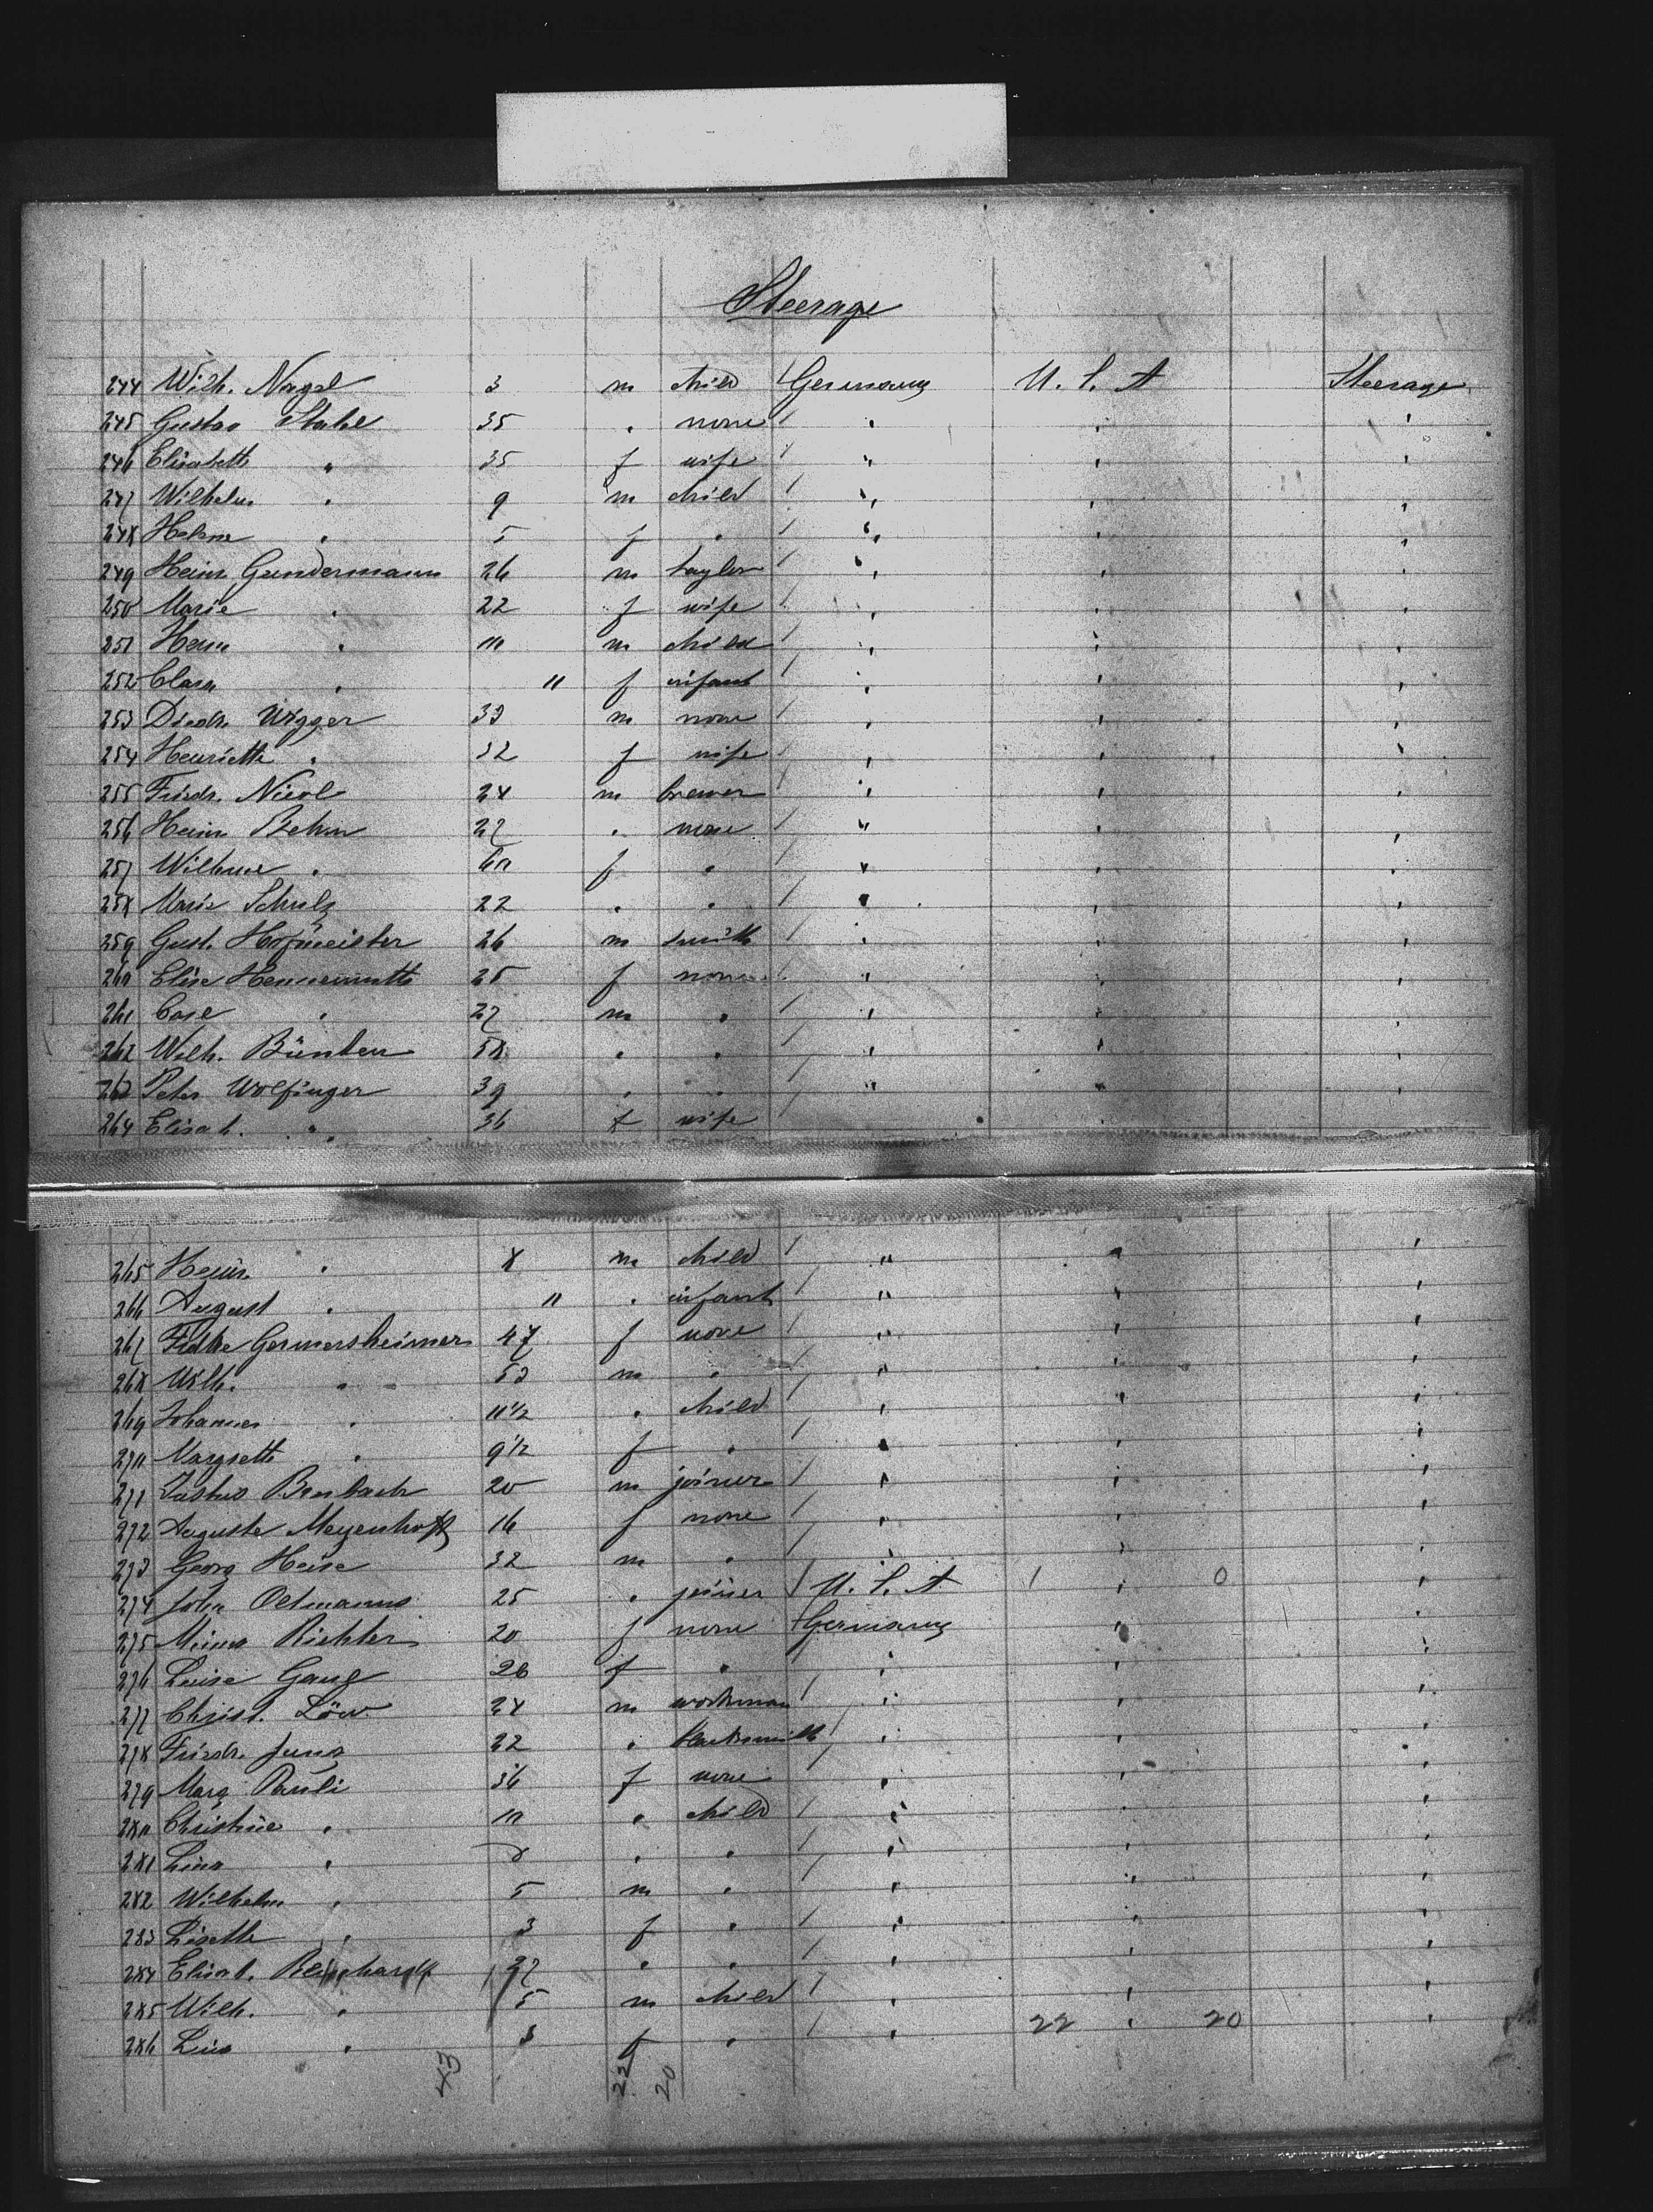 Steerage
244 Wilh. Nagel 3 m child / Germany U. S. A Steerage
245 Gustav Stahl 35 " none / " " "
246 Elisabeth " 35 f wife / " " "
247 Wilhelm " 9 m child / " " "
248 Helene " 5 f " / " " "
249 Heinr. Gundermann 26 m taylor / " " "
250 Marie " 22 f wife / " " "
251 " m child / " " "
252 Clara " 11 f infant / " " "
253 Diedr. Wigger 33 m none / " " "
254 Henriette " 32 f wife / " " "
255 Friedr. Nicol 24 m brewer / " " "
256 Heinr. Behm 27 " none / " " "
257 " 60 f " / " " "
258 Marie Schulz 22 " " / " " "
259 Gust. Hofmeister 26 m smith / " " "
260 Elise 25 f none / " " "
261 Carl " 27 m " / " " "
262 Wilh. Bünten 58 " " / " " "
263 Peter Wolfinger 39 " " / " " "
264 Elisab. " 36 f wife
265 Heinr. " 8 m child / " " "
266 August " 11 " infant / " " "
267 Germersheimer 47 f none / " " "
268 Wilh. " 53 m " / " " "
269 Johannes " 11 1/2 " child / " " "
270 Margreth " 9 1/2 f " / " " "
271 Justus 20 m joiner / " " "
272 Auguste 16 f none / " " "
273 Georg Heise 32 m " / " " "
274 John Oetmanns 25 " joiner / U. S. A 1 " 0 "
275 Meima Richter 20 f none / Germany " "
276 Luise 26 f " " " "
277 Christ. Löw 24 m workman / " " "
278 Friedr. Jung 22 " blacksmith / " " "
279 Marg. Pauli 36 f none / " " "
280 Christine " 10 " child / " " "
281 Lina " 8 " " / " " "
282 Wilhelm " 5 m " / " " "
283 Lisette " 3 f " / " " "
284 Elisab. 27 " " / " " "
285 Wilh. " 5 m child / " " "
286 Lina " 3 f " / " 22 " 20 "
43 22 20